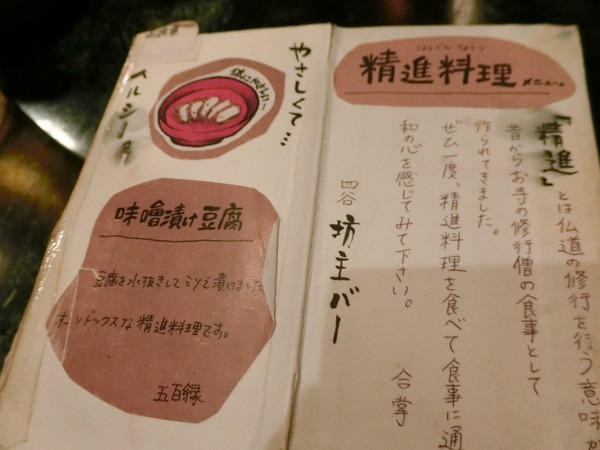 しょうじん りょうり
精進料理 メニュー。
「精進」とは仏道の修行を行う意味が
昔からお寺の修行僧の食事として
作られてきました。
ぜひ一度、精進料理を食べて食事に通
和の心を感じてみて下さい。
合掌
四谷 坊主バー
やさしくて…
ヘルシー
味噌漬け豆腐
豆腐を水抜きしてミソで漬けました
オーソドックスな精進料理です。
五百縁